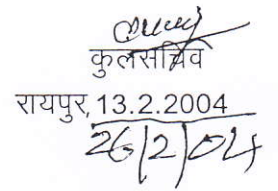 कुलसचिव
रायपुर, 13.2.2004
26/2/04